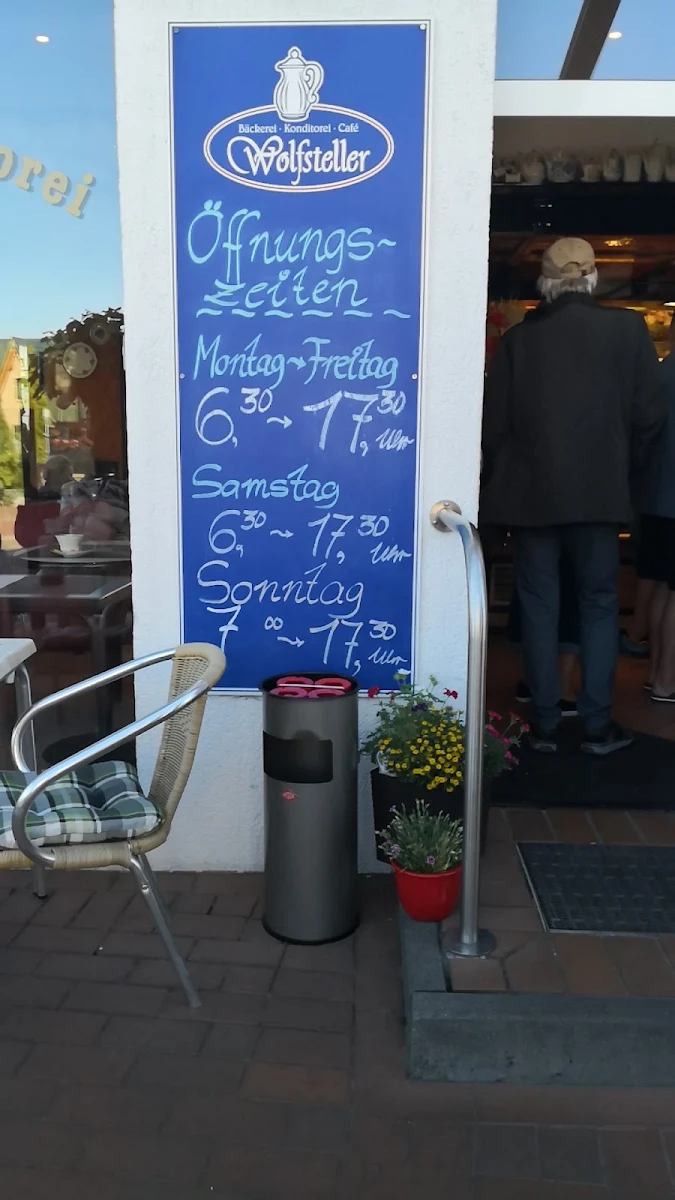 orei
Bäckerei · Konditorei · Café
Wolfsteller
Öffnungs~
zeiten
Montag~Freitag
6,30 ~ 17,30 Uhr
Samstag
6,30 ~ 17,30 Uhr
Sonntag
7 00 ~ 17,30 Uhr